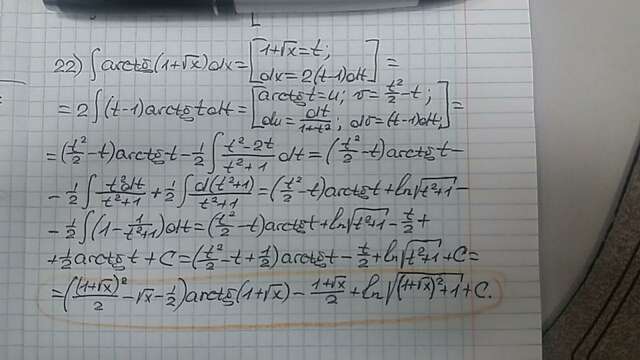 22) ∫ arctg(1+√x)dx = [1+√x = t; dx = 2(t-1)dt] =
= 2 ∫ (t-1)arctg t dt = [arctg t = u; v = t²/2 - t; du = dt/(1+t²); dv = (t-1)dt;] =
= (t²/2 - t)arctg t - 1/2 ∫ (t² - 2t)/(t² + 1) dt = (t²/2 - t)arctg t -
- 1/2 ∫ t²dt/(t²+1) + 1/2 ∫ d(t²+1)/(t²+1) = (t²/2 - t)arctg t + ln√(t²+1) -
- 1/2 ∫ (1 - 1/(t²+1))dt = (t²/2 - t)arctg t + ln√(t²+1) - t/2 +
+ 1/2 arctg t + C = (t²/2 - t + 1/2)arctg t - t/2 + ln√(t²+1) + C =
= ((1+√x)²/2 - √x - 1/2)arctg(1+√x) - (1+√x)/2 + ln√((1+√x)²+1) + C.